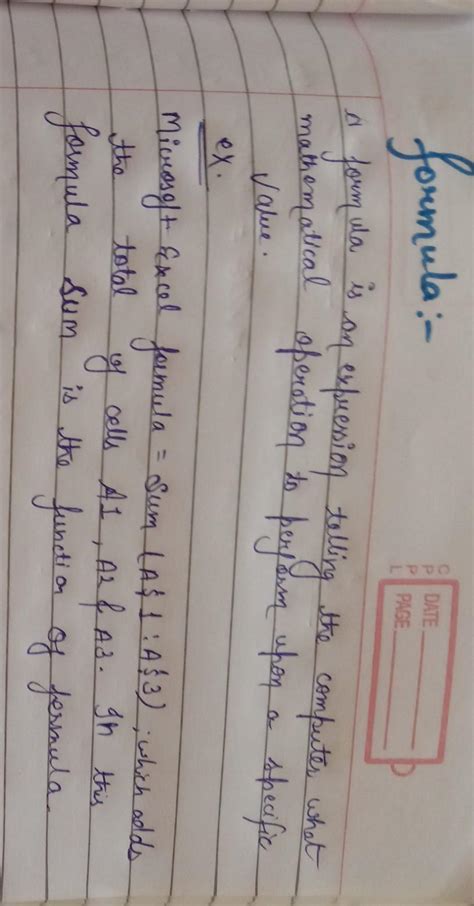 formula:-
CPPL
DATE
PAGE
A formula is an expression telling the computer what
mathematical operation to perform upon a specific
value.
ex.
Microsoft Excel formula = Sum (A$1 : A$3), which adds
the total of cells A1, A2 & A3. In this
formula Sum is the function of formula.